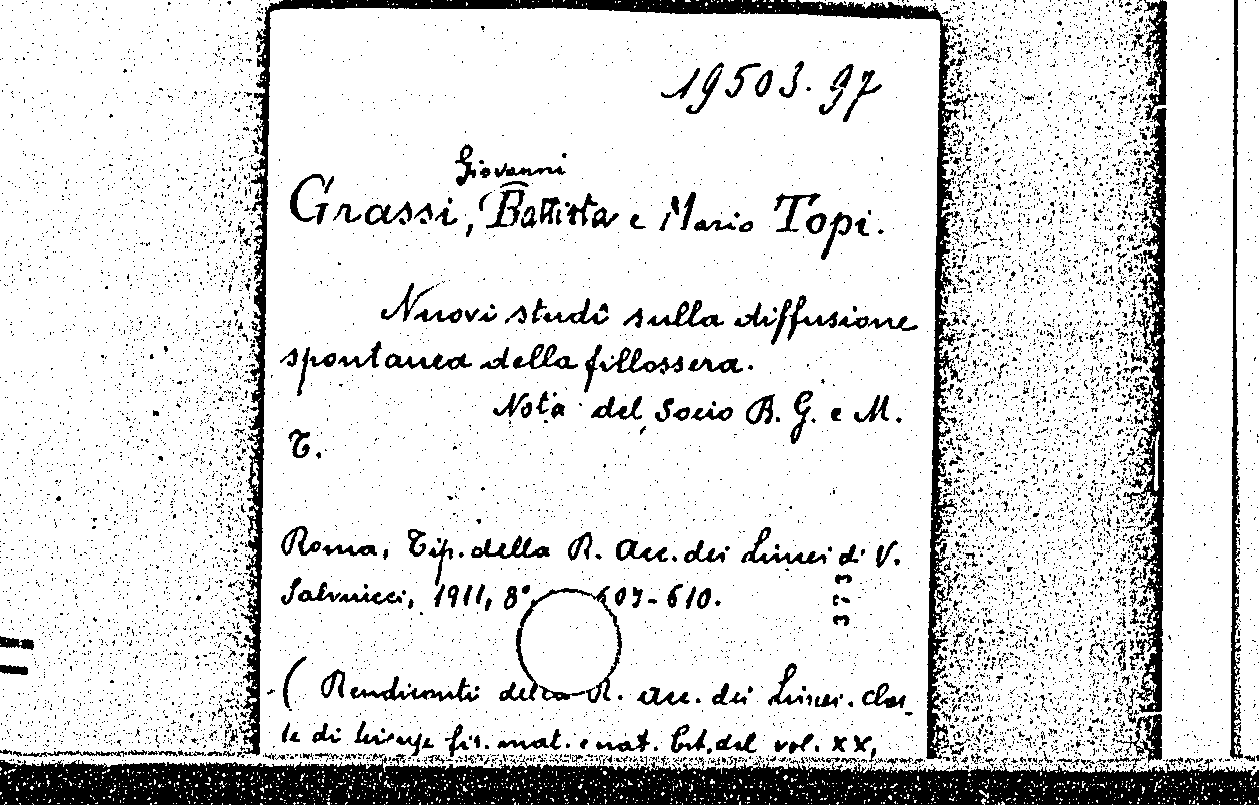 19503. 97
Giovanni
Grassi, Battista e Mario Topi.
Nuovi studî sulla diffusione
spontanea della fillossera.
Nota del Socio B. G. e M.
T.
Roma, Tip. della R. Acc. dei Lincei di V.
Salviucci, 1911, 8°, 607-610.
373
( Rendiconti della R. Acc. dei Lincei. Clas-
se di scienze fis. mat. e nat. Est. dal vol. XX,